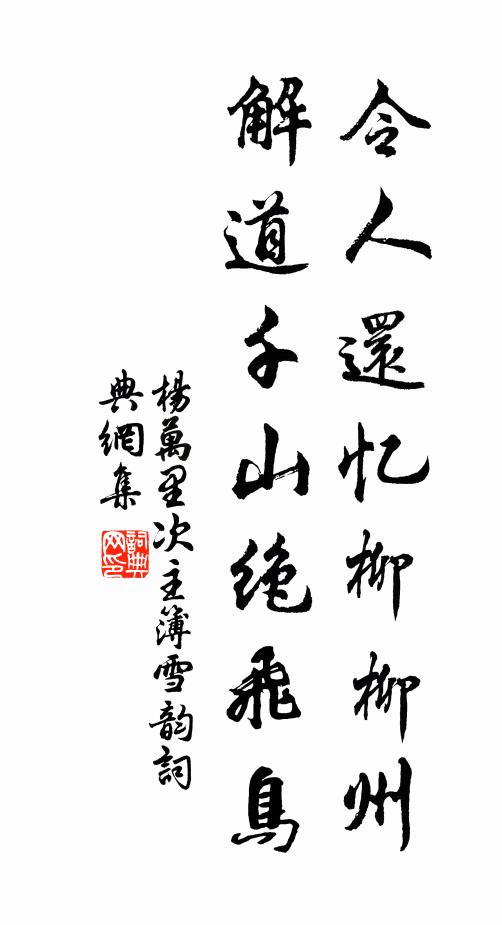 令人還忆柳柳州
解道千山绝飛鳥
楊萬里次主簿雪韵詞
典網集
詞典
网印